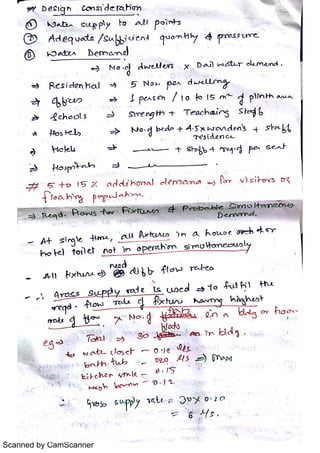 * Design Consideration
① Water supply to all points
② Adequate / Sufficient quantity & pressure
③ Water Demand
⇒ No. of dwellers × Dail water demand.
⇒ Residential ⇒ 5 Nos. per dwelling
⇒ Offices ⇒ 1 person / 10 to 15 m² of plinth area
⇒ Schools ⇒ Strength + Teachaing Staff
⇒ Hostels ⇒ No. of beds + 4.5 × warden's + staff residence
⇒ Hotels ⇒ + Staff + req. of per seat
⇒ Hospitals ⇒
# 5 to 15 % additional demand ⇒ for visitors or
floating population.
⇒ Reqd. Flows for Fixtures & Probable Simultaneous
Demand.
- At single time, all fixtures in a house or
hotel toilet not in operation simultaneously
- All fixture ⇒ need diff flow rates
- ∴ Gross supply rate is used ⇒ to fulfil the
reqd. flow rate of fixture having highest
rate of flow × No. of in a bldg or floor.
eg ⇒ Total ⇒ 30 in bldg.
water closet - 0.12 l/s
bath tub - 0.20 l/s ⇒ more
kitchen sink - 0.15
wash basin - 0.12
∴ Gross supply rate = 30 × 0.20
= 6 l/s.
Scanned by CamScanner